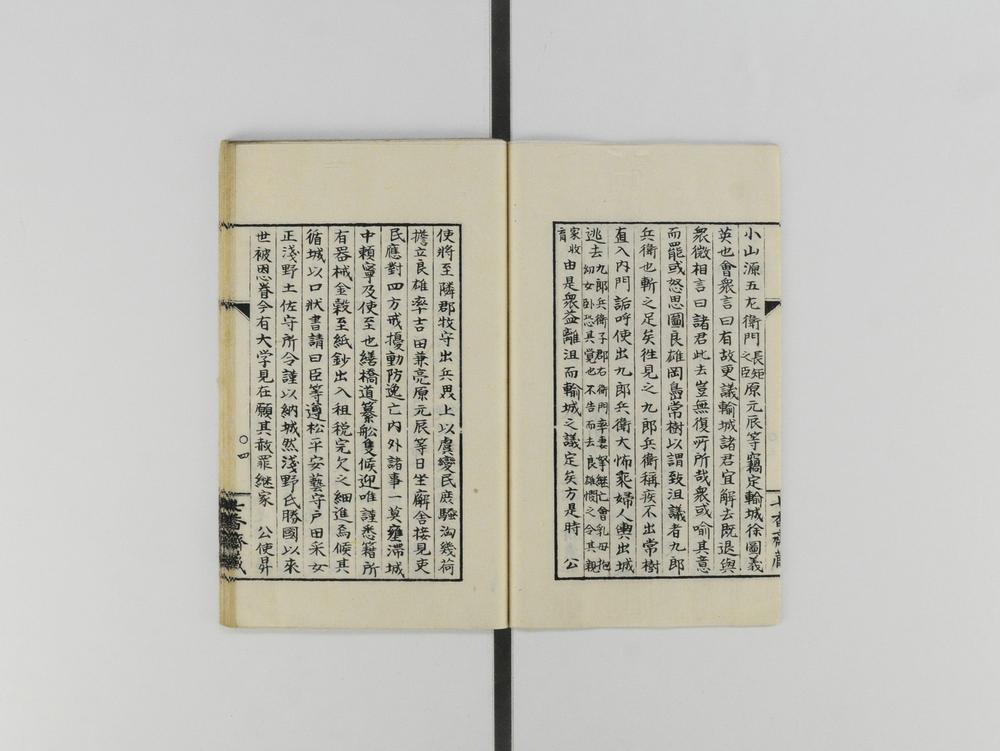 小山源五左衛門長矩之臣原元辰等竊定輸城徐圖義
英也會衆言曰有故更議輸城諸君宜解去既退與
衆微相言曰諸君此去豈無復所哉衆或喻其意
而罷或怒思圖良雄岡島常樹以謂致沮議者九郎
兵衛也斬之足矣徃見之九郎兵衛稱疾不出常樹
直入内門詬呼使出九郎兵衛大怖乘婦人輿出城
逃去九郎兵衛子郡右衛門率妻孥継亡會乳母抱幼女卧恐其覺也不告而去良雄憫之令其親
家收育由是衆益離沮而輸城之議定矣方是時 公
使將至隣郡牧守出兵畏上以虞變民庶騷洶幾荷
擔立良雄率吉田兼亮原元辰等日坐廨舍接見吏
民應對四方戒擾動防逸亡内外諸事一莫壅滞城
中頼寧及使至也繕橋道纂舩隻候迎唯謹悉籍所
有器械金穀至紙鈔出入租税完欠之細進焉候其
循城以口狀書請曰臣等遵松平安藝守戸田采女
正淺野土佐守所令謹以納城然淺野氏勝國以來
世被恩眷今有大学見在願其赦罪継家 公使昇
〇四